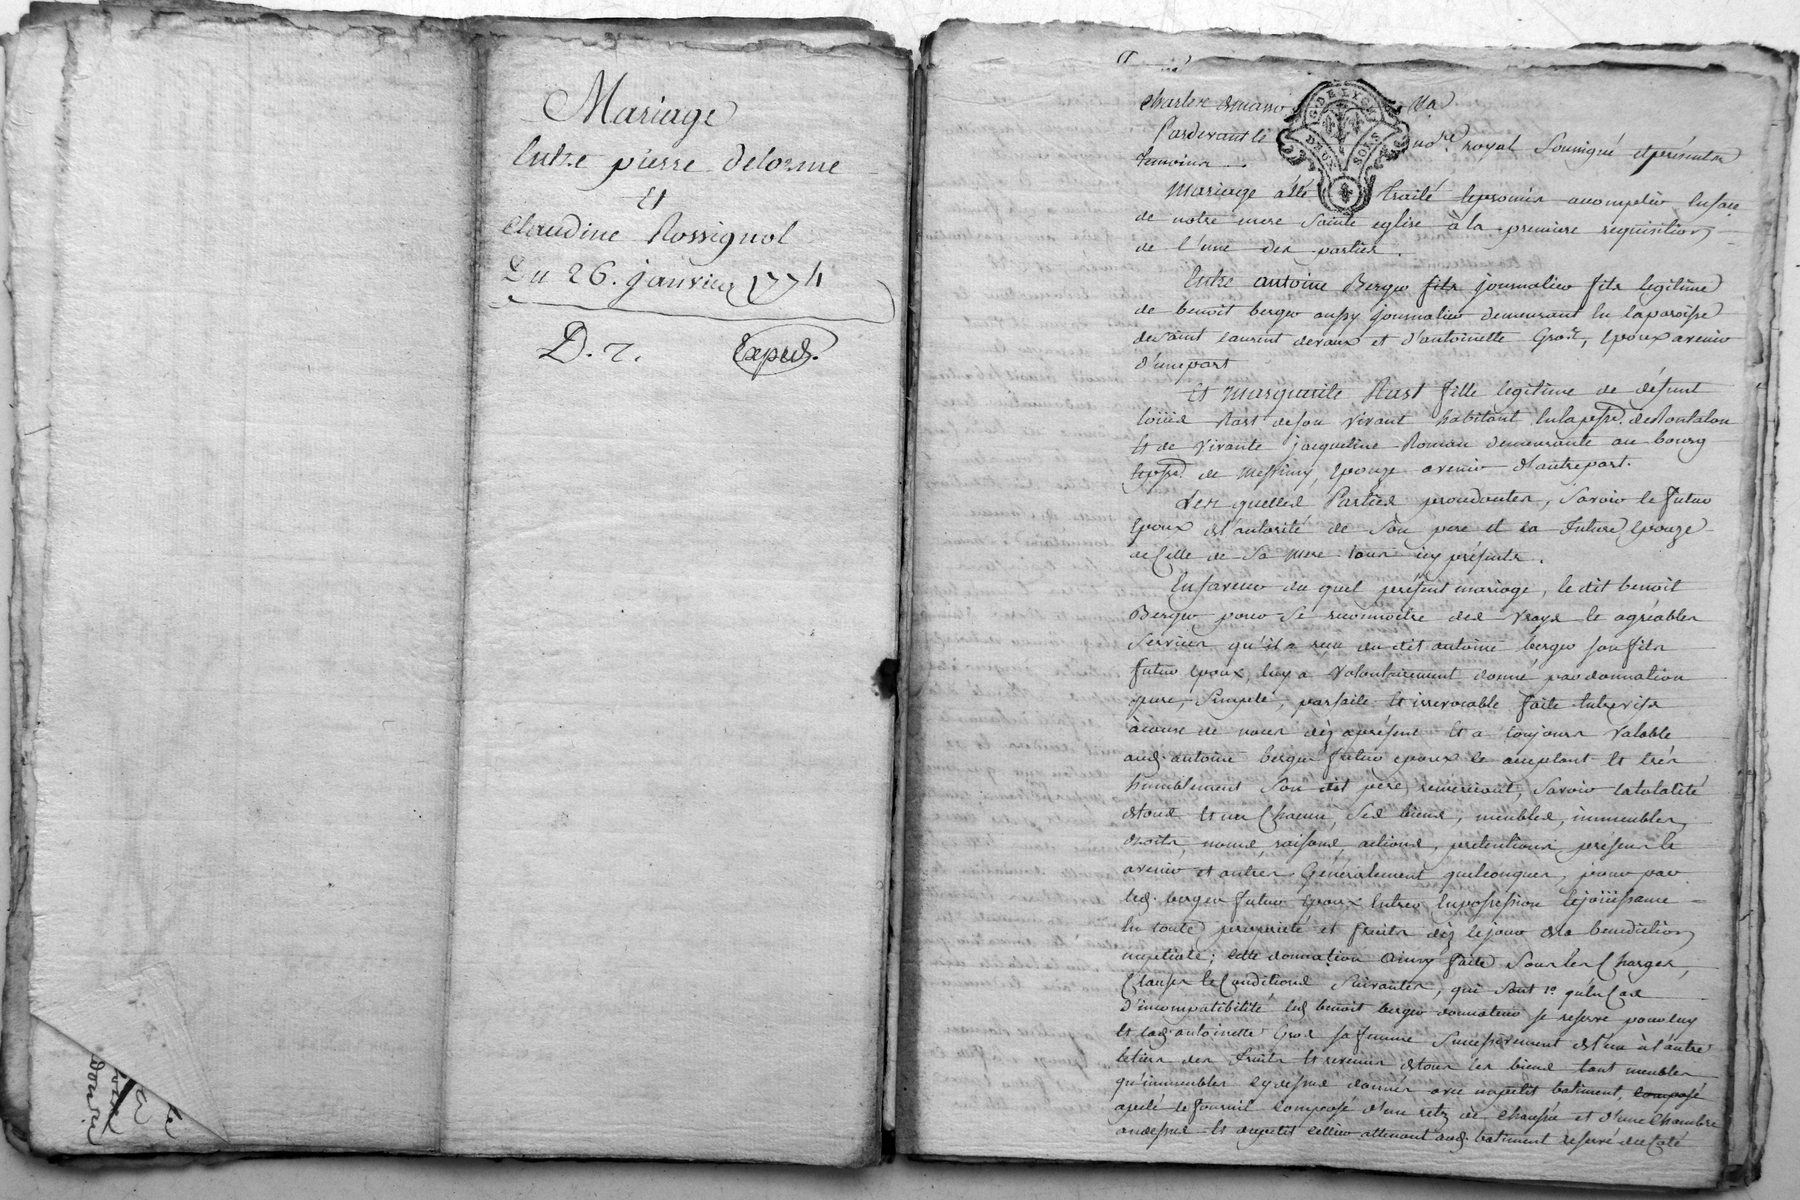 Mariage
Entre pierre Delorme
Et
Claudine Rossignol
Du 26. janvier 1774
D. 7.
Exped.
G. DE LYON
DEUX SOLS
Pardevant le no.re royal Soussigné et présents
temoins
Mariage a été traité le promis acomplir en face
de notre mere Sainte eglise à la premiere requisition
de l'une des parties.
Entre antoine Berger fils journalier fils legitime
de benoit berger aussy journalier demeurant en la paroisse
de Saint Laurent de vaux et d'antoinette Gros, Epoux avenir
d'une part
Et Marguerite Rast fille legitime de défunt
loüis Rast de son vivant habitant en la psse.
Et de vivante jacqueline Roman demeurante au bourg
de Messimy, Epouze avenir d'autre part.
Les quelles Parties procedantes, Savoir le futur
Epoux de l'autorité de Son pere et la future Epouze
de Celle de Sa Mere tous icy présents.
En faveur du quel présent mariage, le dit benoit
Berger pour Se reconnoitre des vrays et agréables
Services qu'il a reçu du dit antoine berger son fils
futur Epoux, luy a volontairement donné par donnation
pure, Simple, parfaite et irrevocable faite entre vifs
à cause de noces dès aprésent et a toujours valable
aud. antoine berger futur epoux le acceptant et très
humblement Son dit pere remerciant, Savoir la totalité
de tous et un Chacun, Ses biens, meubles, immeubles,
droits, noms, raisons, actions, pretentions présens et
avenir et autres Generalement quelconques, pour par
led. berger futur Epoux Entrer En possession et joüissance
En toute proprieté et fruits dès le jour de la benediction
nuptiale; cette donnation ainsy faite Sous les Charges,
Clauses et Conditions Suivantes, qui Sont 1.o qu'en Cas
d'incompatibilité led. benoit berger donnateur se reserve pour luy
et lad. antoinette Gros sa femme Successivement de l'un à l'autre
le tiers des fruits et revenus de tous les biens tant meubles
qu'immeubles cy dessus donnés avec un petit batiment, composé
apelé le fournil composé d'un retz de Chaussée et d'une Chambre
au dessus et du petit Cellier attenant aud. batiment reservé du Coté